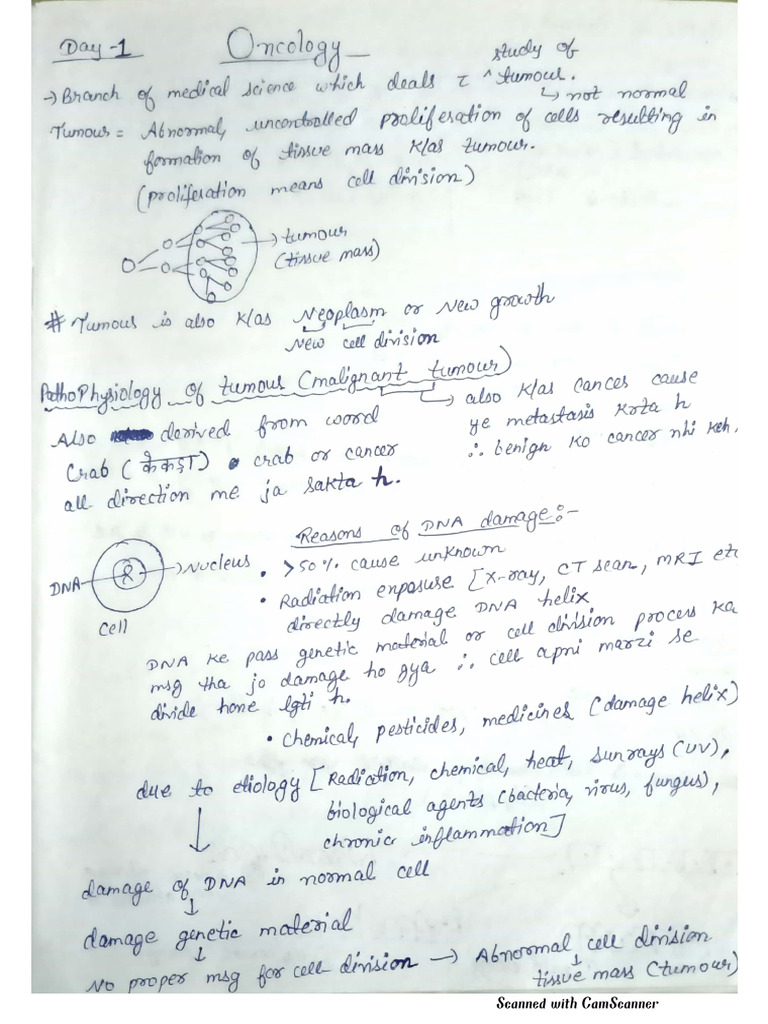 Day-1 Oncology
study of
→ Branch of medical science which deals c̄ ^ tumour.
↳ not normal
Tumour = Abnormal, uncontrolled proliferation of cells resulting in
formation of tissue mass K/as tumour.
(proliferation means cell division)
→ tumour
(tissue mass)
# Tumour is also K/as Neoplasm or New growth
New cell division
PathoPhysiology of tumour (malignant tumour)
↳ also K/as cancer cause
ye metastasis krta h
∴ benign ko cancer nhi keh.
Also derived from word
Crab (केकड़ा) crab or cancer
all direction me ja sakta h.
Reasons of DNA damage:-
DNA → Nucleus
Cell
• >50% cause unknown
• Radiation exposure [X-ray, CT scan, MRI etc
directly damage DNA helix
DNA ke pass genetic material or cell division process ka
msg tha jo damage ho gya ∴ cell apni marzi se
divide hone lgti h.
• Chemical, pesticides, medicines (damage helix)
due to etiology [Radiation, chemical, heat, sunrays (UV),
biological agents (bacteria, virus, fungus),
chronic inflammation]
↓
damage of DNA in normal cell
↓
damage genetic material
↓
No proper msg for cell division → Abnormal cell division
↓
tissue mass (tumour)
Scanned with CamScanner